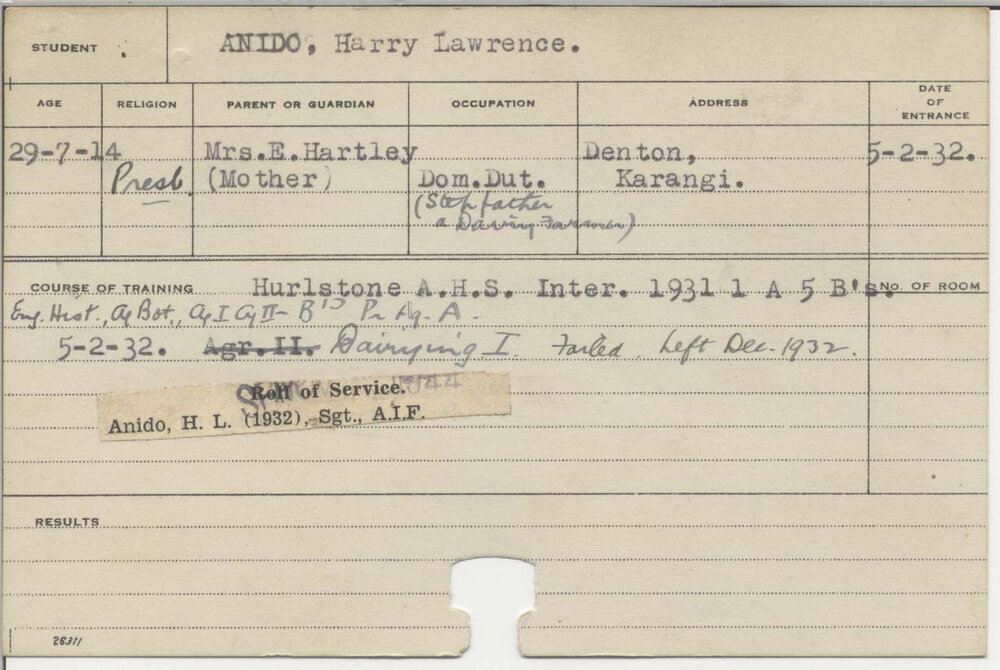 STUDENT
ANIDO, Harry Lawrence.
AGE
RELIGION
PARENT OR GUARDIAN
OCCUPATION
ADDRESS
DATE OF ENTRANCE
29-7-14
Presb.
Mrs.E.Hartley
(Mother)
Dom.Dut.
(Step father
a Dairy Farmer)
Denton,
Karangi.
5-2-32.
COURSE OF TRAINING
Hurlstone A.H.S. Inter. 1931 1 A 5 B's.
NO. OF ROOM
Eng. Hist., Ag Bot., Ag I Ag II - B's Pr Ag. A.
5-2-32. Agr.II. Dairying I. Failed. Left Dec. 1932.
Roll of Service.
1944
Anido, H. L. (1932), Sgt., A.I.F.
RESULTS
26311